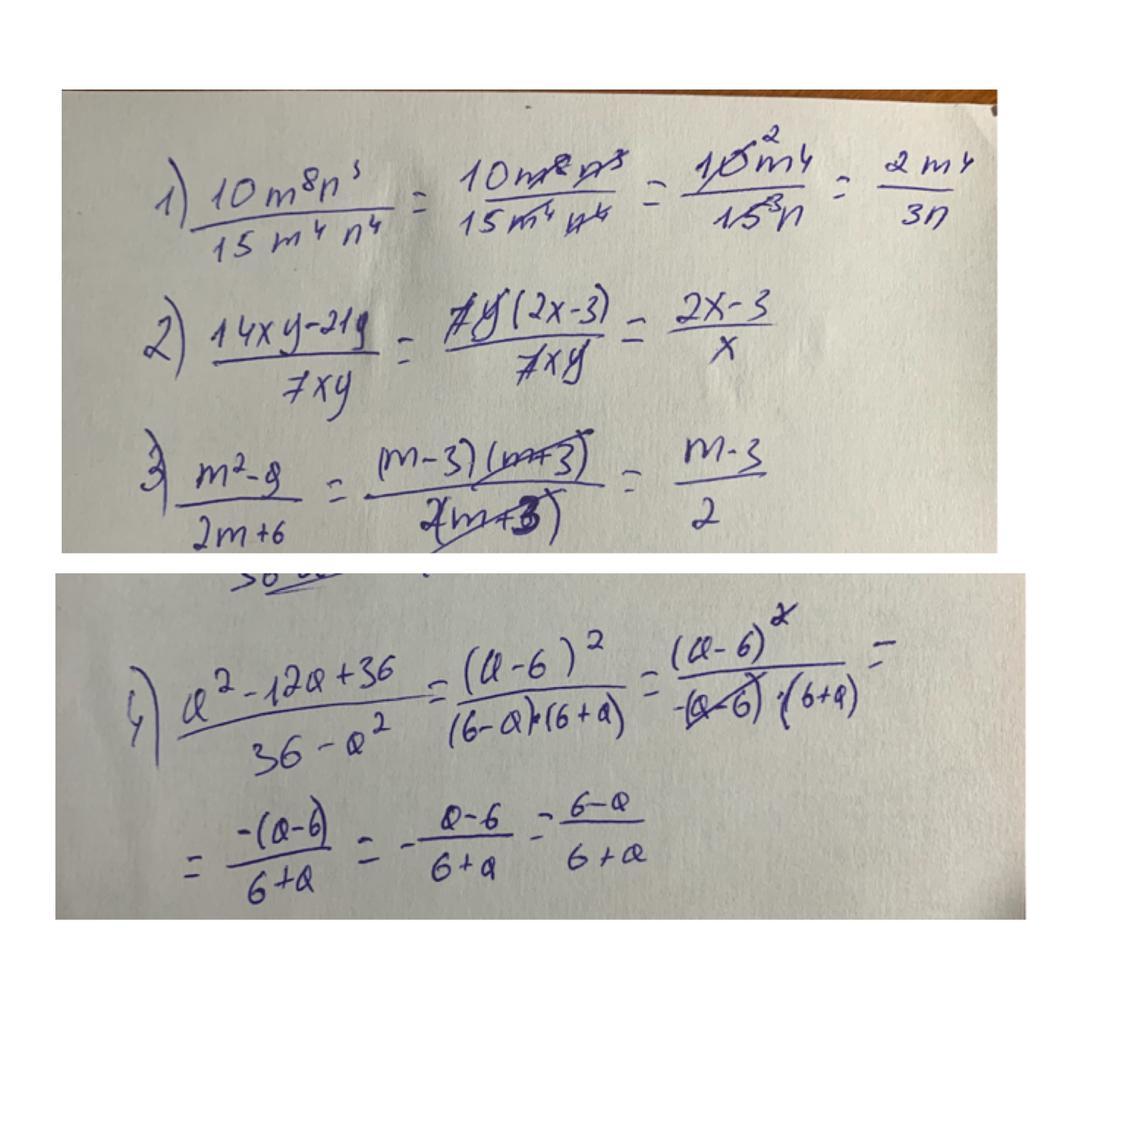 1) 10m⁸n³/15m⁴n⁴ = 10m⁸n³/15m⁴n⁴ = 10²m⁴/15³n = 2m⁴/3n
2) 14xy-21y/7xy = 7y(2x-3)/7xy = 2x-3/x
3) m²-9/2m+6 = (m-3)(m+3)/2(m+3) = m-3/2
4) a²-12a+36/36-a² = (a-6)²/(6-a)·(6+a) = (a-6)²/-(a-6)·(6+a) =
= -(a-6)/6+a = - a-6/6+a = 6-a/6+a